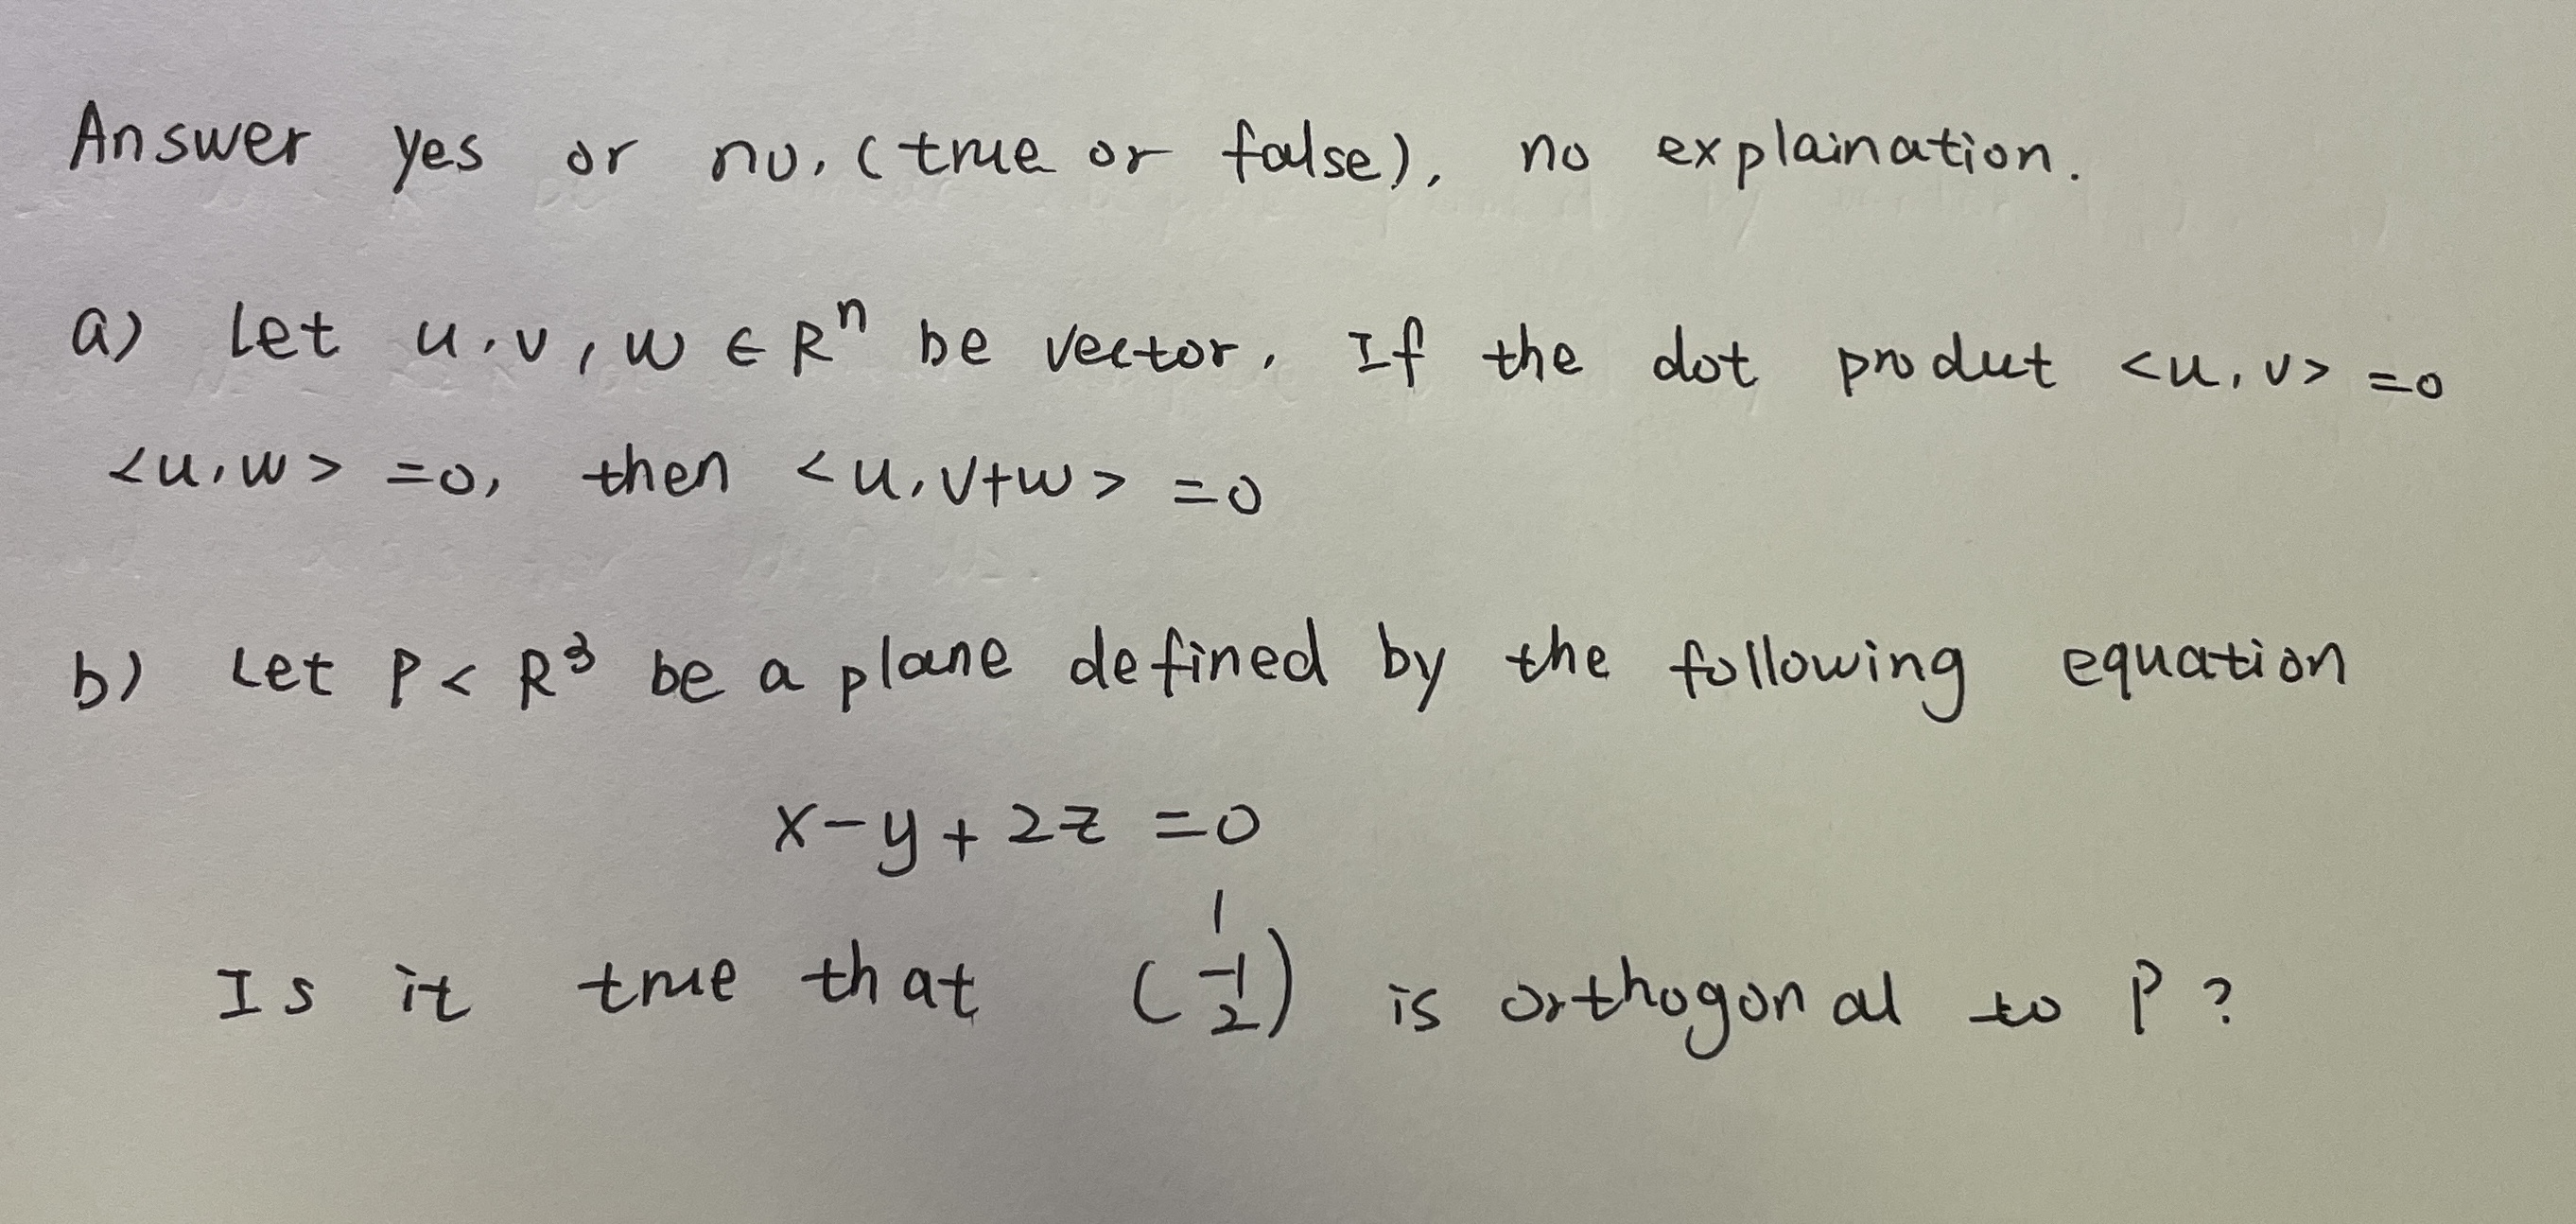 Answer yes or no, (true or false), no explaination.
a) Let u, v, w ∈ Rⁿ be vector, If the dot produt <u, v> =0
<u, w> =0, then <u, v+w> =0
b) Let P < R³ be a plane defined by the following equation
x-y+2z =0
Is it true that (1 -1 2) is orthogonal to P?